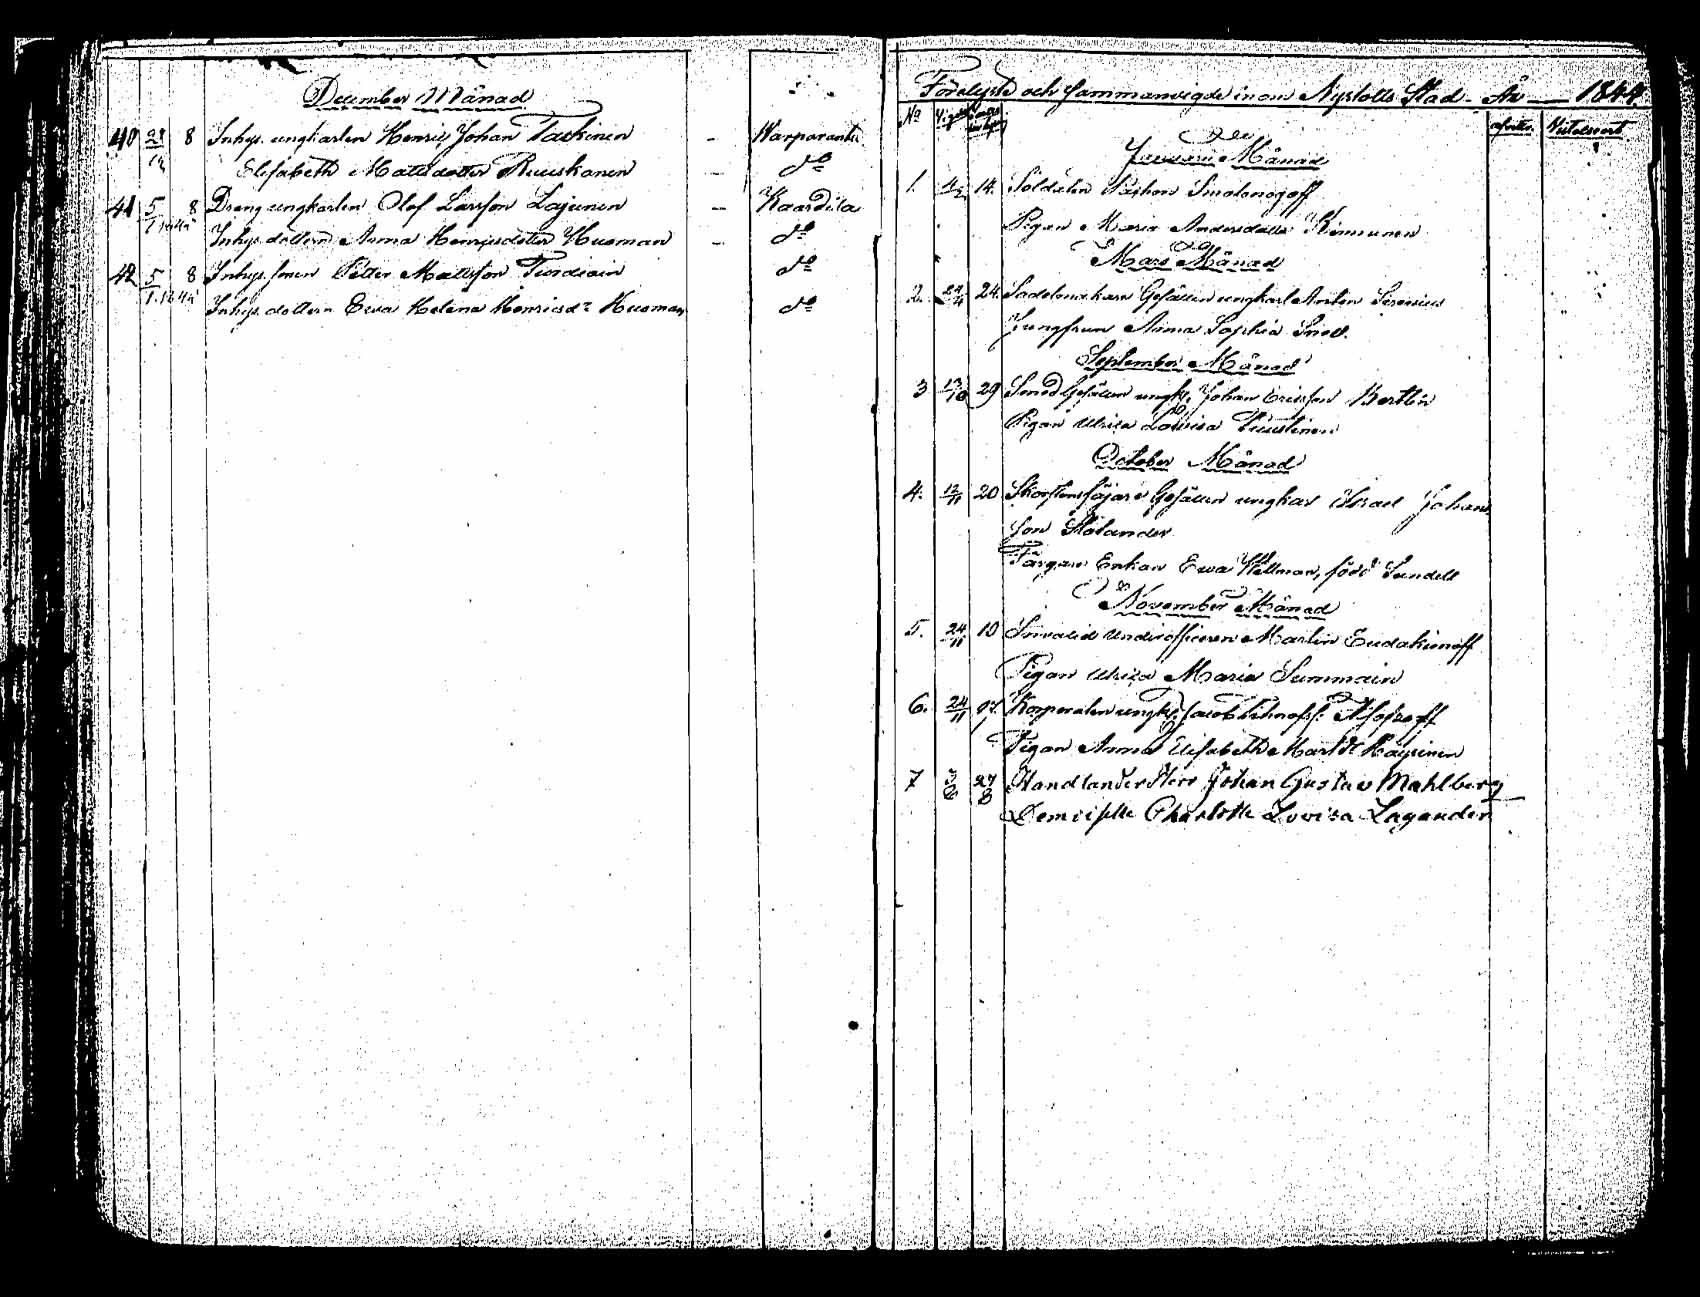 December Månad
40 28/12 8 Inhys. ungkarlen Henric Johan Taskinen - Warparanta
Elisabeth Mattsdotter Ruuskanen - do
41 5/1 1844 8 Dreng ungkarlen Olof Larsson Lajunen - Kaartila
Inhys. dottern Anna Henricsdotter Husman - do
42 5/1 1844 8 Inhys. sonen Petter Mattsson Tiordiain do
Inhys. dottern Ewa Helena Henricsdr Husman do
Förelyste och Sammanvigde inom Nyslotts Stad - År - 1844
No Vigde afvittr. Wistelseort
Januari Månad
1. 14. Soldaten Smolenogoff
Pigan Maria Andersdotter Kinnunen
Mars Månad
2. 24. Sadelmakare Gesällen ungkarl Anton Sirenius
Jungfrun Anna Sophia Snell.
September Månad
3 13/10 29 Smed Gesällen ungk. Johan Ericsson Bertlin
Pigan Ulrica Lovisa Puustinen
October Månad
4. 12/11 20 Skorstensfejare Gesällen ungkar Israel Johans
son Stolander
Färgare Enkan Ewa Wellman, född Sundell
November Månad
5. 24/11 10 Invalid Underofficeren Martin Eudokimoff
Pigan Ulrica Maria Summain
6. 24/11 17. Korporalen ungk. Jacob
Pigan Anna Elisabeth Martsdr Käyhinen
7 3/6 27/8 Handlanden Herr Johan Gustav Mahlberg
Demoiselle Charlotte Lovisa Lagander